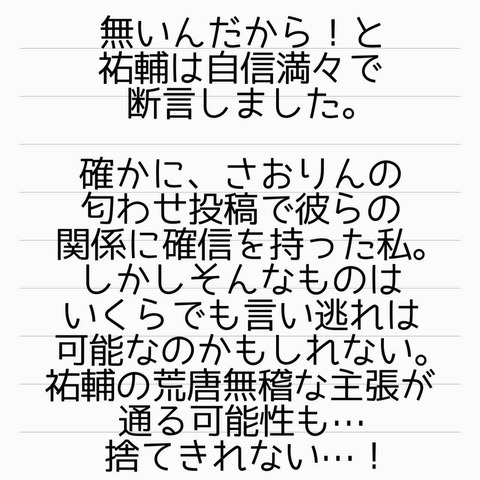 無いんだから！と
祐輔は自信満々で
断言しました。
確かに、さおりんの
匂わせ投稿で彼らの
関係に確信を持った私。
しかしそんなものは
いくらでも言い逃れは
可能なのかもしれない。
祐輔の荒唐無稽な主張が
通る可能性も…
捨てきれない…！